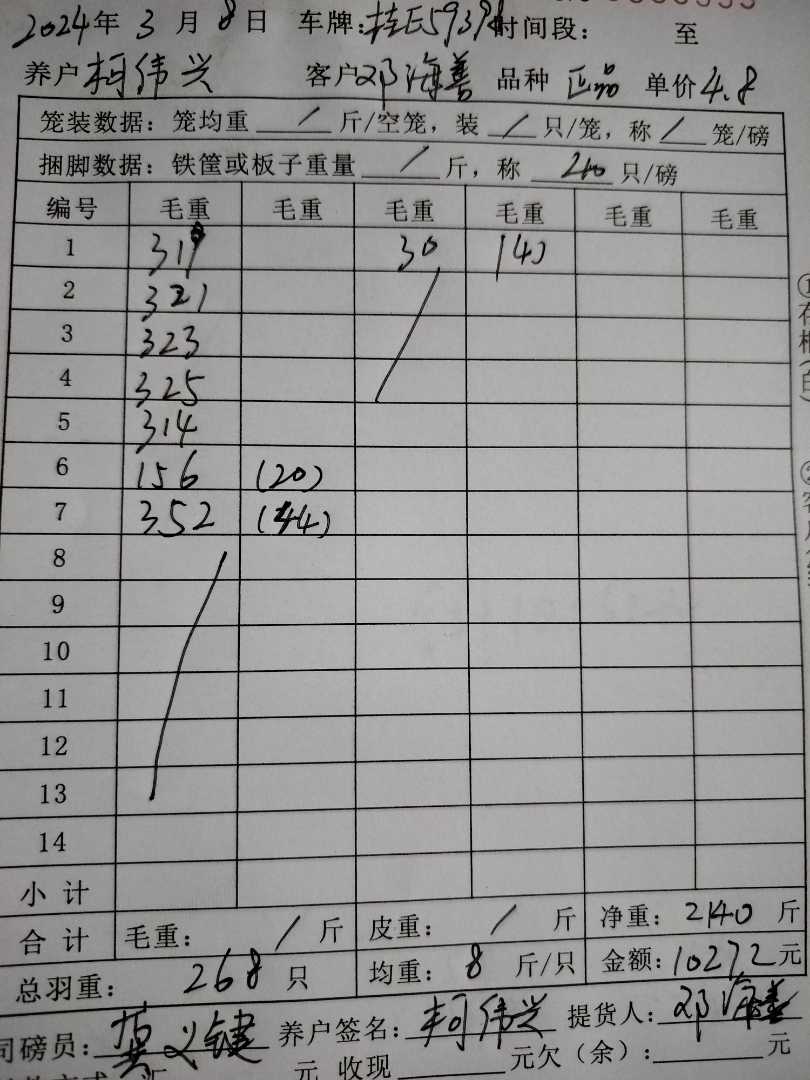 2024年 3月 8日 车牌: 时间段: 至
养户 柯伟兴 客户 邓海善 品种 正品 单价 4.8
笼装数据: 笼均重 / 斤/空笼, 装 / 只/笼, 称 / 笼/磅
捆脚数据: 铁筐或板子重量 / 斤, 称 只/磅
编号 毛重 毛重 毛重 毛重 毛重 毛重
1 319 30 (4)
2 321
3 323
4 325
5 314
6 156 (20)
7 352 (44)
8
9
10
11
12
13
14
小计
合计 毛重: / 斤 皮重: / 斤 净重: 2140 斤
总羽重: 268 只 均重: 8 斤/只 金额: 10272 元
司磅员: 龚义键 养户签名: 柯伟兴 提货人: 邓海善
元 收现 元欠(余): 元